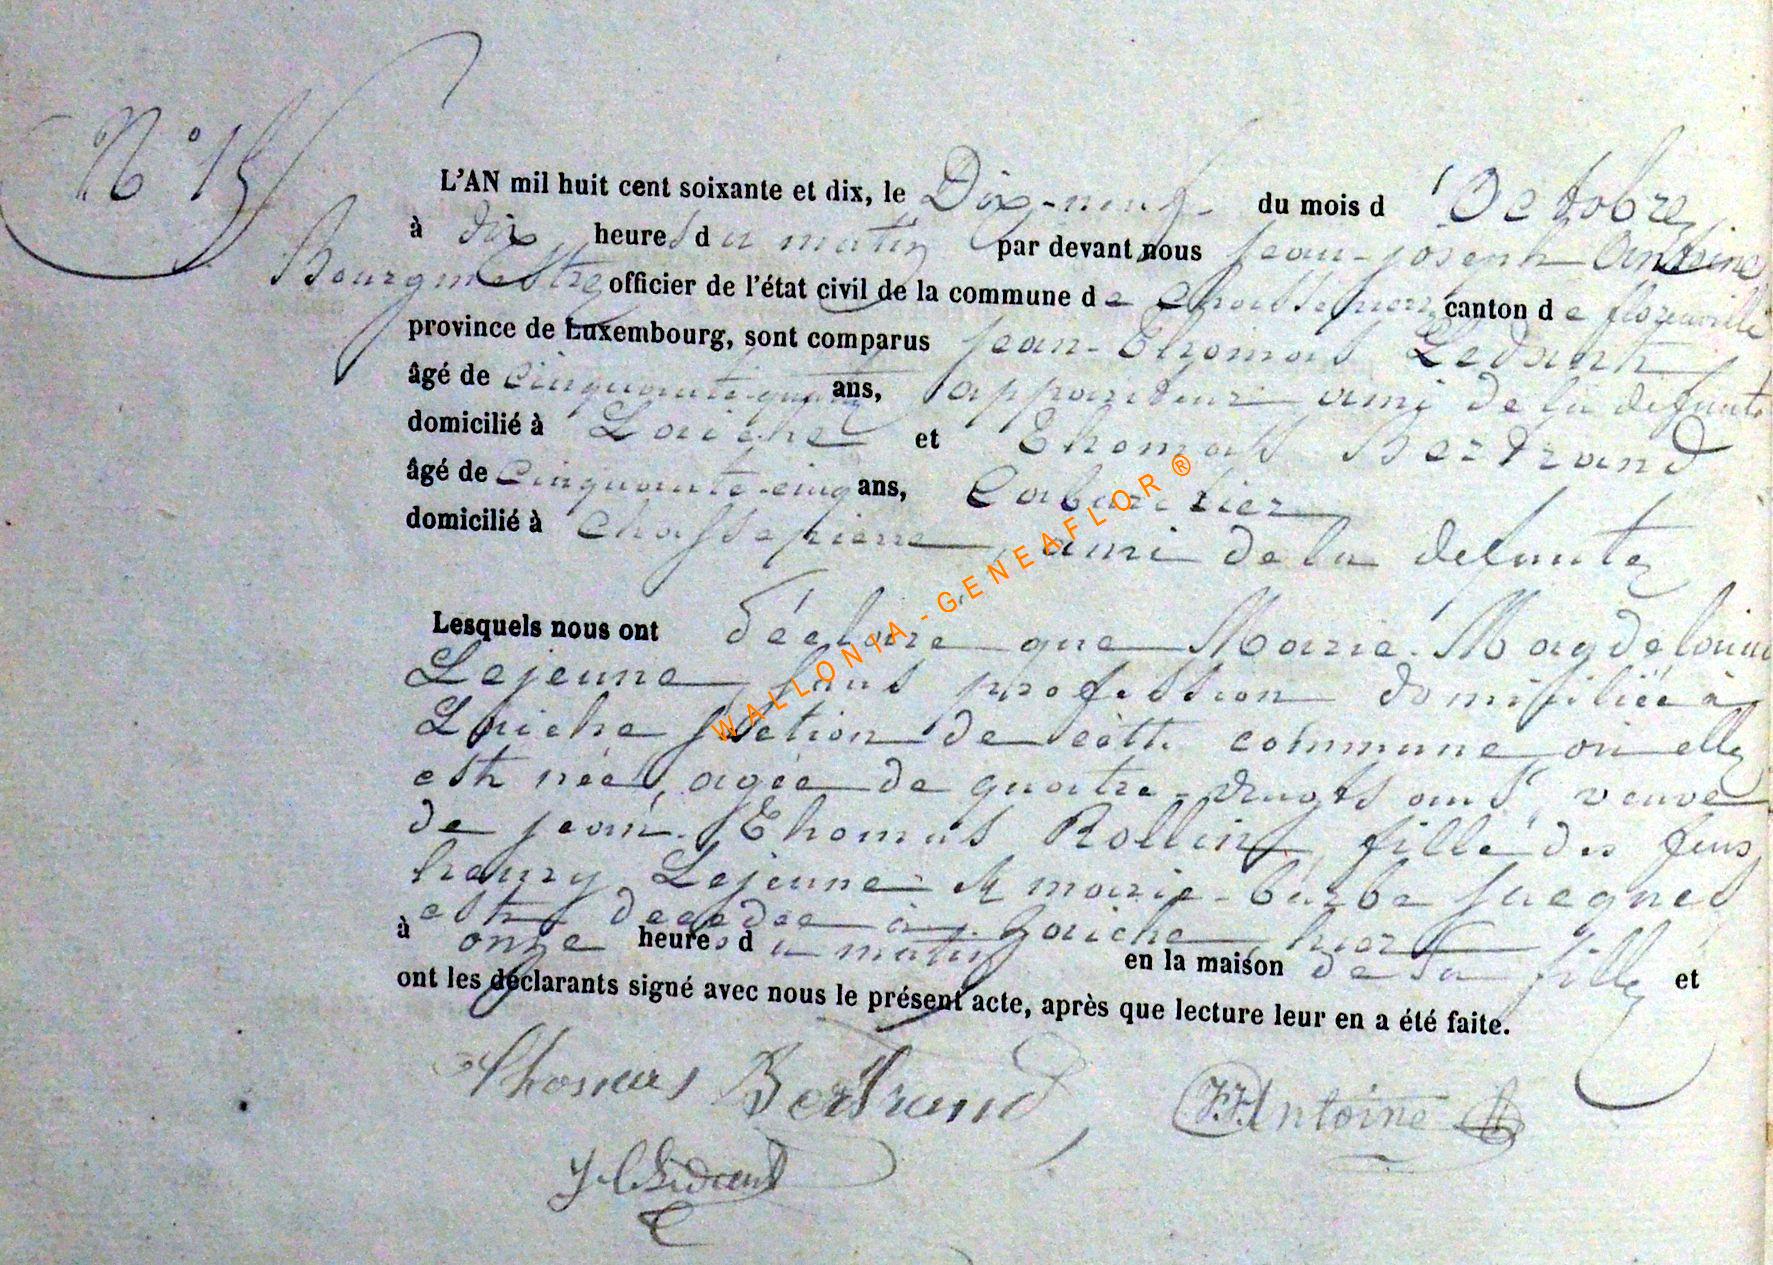 N° 15
L'AN mil huit cent soixante et dix, le Dix-neuf du mois d'Octobre
à dix heures du matin par devant nous jean-joseph Antoine
Bourgmestre officier de l'état civil de la commune de Chassepierre canton de florenville
province de Luxembourg, sont comparus jean-Thomas Ledant
âgé de cinquante-quatre ans, appariteur ami de la defunte
domicilié à Laiche et Thomas Bertrand
âgé de cinquante-cinq ans, Cabaretier
domicilié à Chassepierre, ami de la defunte
Lesquels nous ont déclaré que Marie-Magdelaine
Lejeune, sans profession domisiliée à
Laiche section de cette commune où elle
est née, agée de quatre-vingts ans, veuve
de jean-Thomas Rollin, fille des feus
henry Lejeune et marie-barbe
est decedée à Laiche hier
à onze heures du matin en la maison de sa fille et
ont les déclarants signé avec nous le présent acte, après que lecture leur en a été faite.
Thomas Bertrand
J.J. Antoine
WALLONIA-GENEAFLOR®